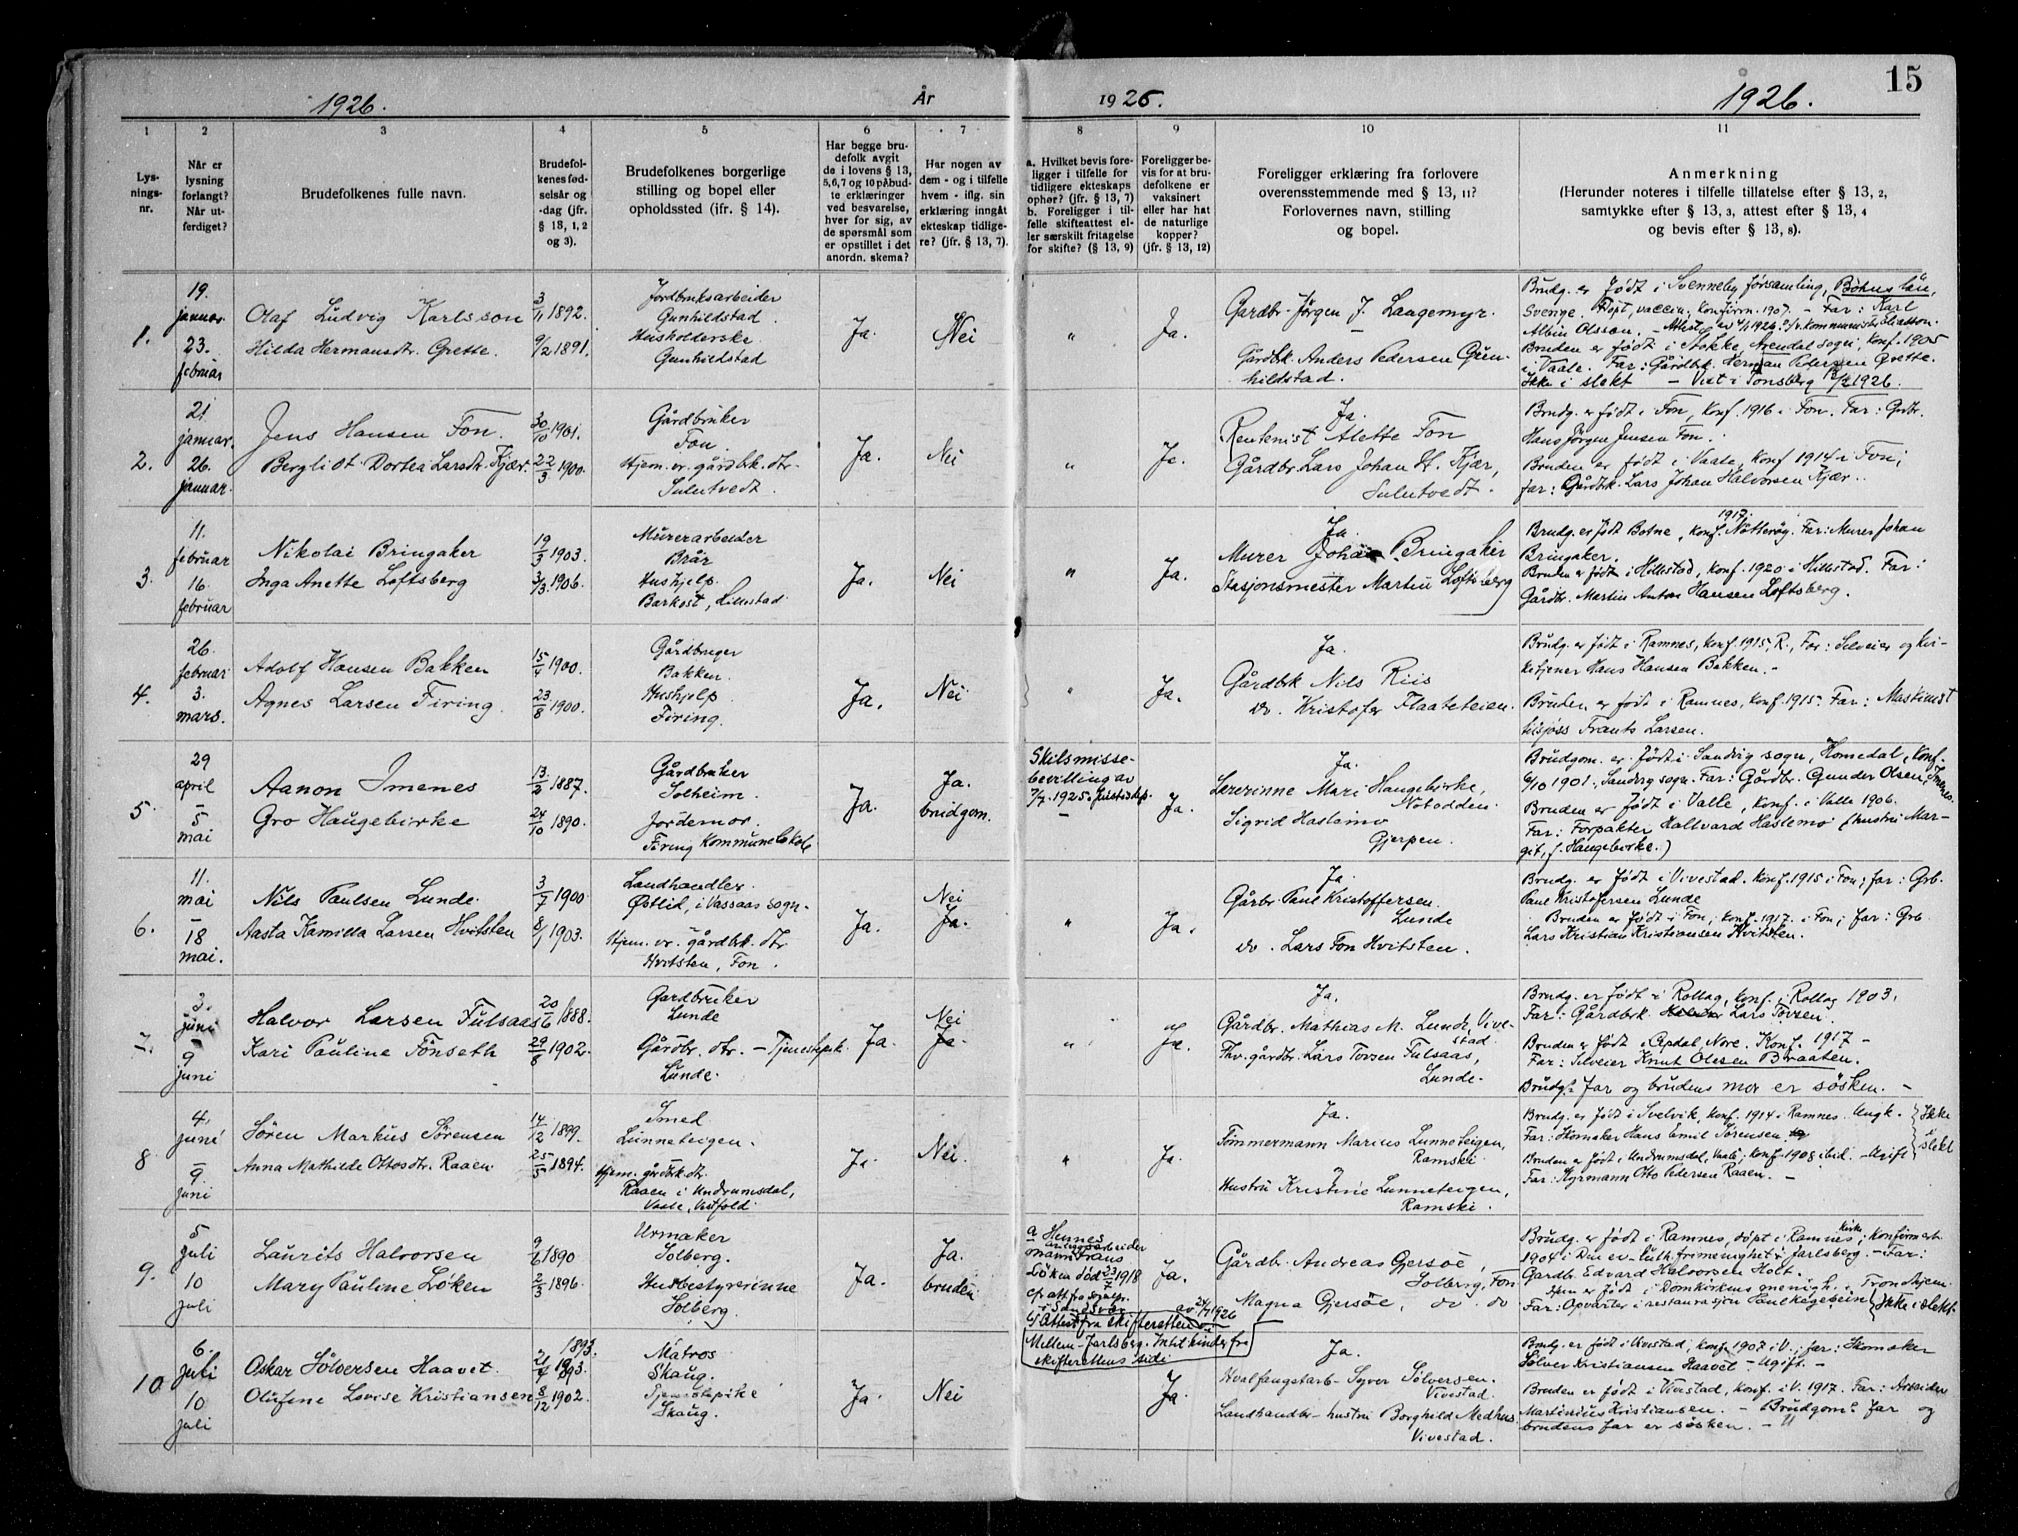 1926.
År
1926.
1926.
15
1
2
3
4
5
6
7
8
9
10
11
Lys-
nings-
nr.
Når er
lysning
forlangt?
Når ut-
ferdiget?
Brudefolkenes fulle navn.
Brudefol-
kenes fød-
selsår og
-dag (jfr.
§ 13, 1, 2
og 3).
Brudefolkenes borgerlige
stilling og bopel eller
opholdssted (ifr. § 14).
Har begge bru-
defolk avgit
de i lovens § 13,
5, 6, 7 og 10 påbud-
te erklæringer
ved besvarelse,
hver for sig, av
de spørsmål som
er opstillet i det
anordn. skema?
Har nogen av
dem - og i tilfelle
hvem - iflg. sin
erklæring inngått
ekteskap tidlige-
re? (jfr. § 13, 7).
a. Hvilket bevis fore-
ligger i tilfelle for
tidligere ekteskaps
ophør? (jfr. § 13, 7)
b. Foreligger i til-
felle skifteattest el-
ler særskilt fritagelse
for skifte? (§ 13, 9)
Foreligger be-
vis for at bru-
defolkene er
vaksinert
eller har hat
de naturlige
kopper?
(jfr. § 13, 12)
Foreligger erklæring fra forlovere
overensstemmende med § 13, 11?
Forlovernes navn, stilling
og bopel.
Anmerkning
(Herunder noteres i tilfelle tillatelse efter § 13, 2,
samtykke efter § 13, 3, attest efter § 13, 4
og bevis efter § 13, 8).
1.
19.
januar
23.
februar
Olaf Ludvig Karlsson
Hilda Hermansdtr. Grette.
3/11 1892.
9/2 1891.
Jordbruksarbeider
Gunhildstad.
Husholderske
Gunhildstad
Ja
Nei
"
Ja.
Gardbr. Jørgen J. Langemyr.
Gårdbk. Anders Pedersen Gun-
hildstad.
Brudg. er født i Svenneby forsamling, Bohus län,
Sverige. Døpt, vaccin., konfirm. 1907. - Far: Karl
Albin Olsson.
Bruden er født i Stokke, Arendal sogn, konf. 1905
i Vaale. Far: Gårdbk. Herman Pedersen Grette.
Ikke i slekt - Viet i Tønsberg 1926.
2.
21
januar.
26.
januar.
Jens Hansen Fon.
Bergliot Dortea Larsdtr. Kjær.
30/10 1901.
22/3 1900.
Gårdbruker
Fon.
Hjem. vr. gårdbk. dtr.
Sulutvedt.
Ja.
Nei
"
Ja.
Ja.
Rentenist Alette Fon
Gårdbr. Lars Johan H. Kjær,
Sulutvedt.
Brudg. er født i Fon, Konf. 1916 i Fon. Far: Grdbr.
Hans Jørgen Jensen Fon.
Bruden er født i Vaale, Konf 1914 i Fon;
far: Gårdbk. Lars Johan Halvorsen Kjær.
3.
11.
februar
16
februar
Nikolai Bringaker
Inga Anette Loftsberg
19/3 1903.
3/3. 1906.
Murerarbeider
Brår
Hushjelp.
Barkost, Hillestad
Ja.
Nei
"
Ja.
Ja.
Murer Johan Bringaker
Stasjonsmester Martin Loftsberg
Brudg. er født Botne, konf. 1917. Nøtterøy. Far: Murer Johan
Bringaker.
Bruden er født i Hillestad, konf. 1920 i Hillestad. Far:
Gårdbr. Martin Anton Hansen Loftsberg.
4.
26.
februar
3.
mars.
Adolf Hansen Bakken
Agnes Larsen Firing.
15/4 1900.
23/8 1900.
Gårdbruger
Bakken.
Hushjelp
Firing.
Ja.
Nei
"
Ja.
Ja.
Gårdbrk Nils Riis
do. Kristofer Flaateteien.
Brudg. er født i Ramnes, konf. 1915, R., Far: Selveier og kir-
ketjener Hans Hansen Bakken. -
Bruden er født i Ramnes, konf. 1915. Far: Maskinist
tilsjøss Frants Larsen.
5.
29
april
5
mai
Aanon Imenes
Gro Haugebirke
13/2 1887.
24/10 1890.
Gårdbruker
Solheim.
Jordemor.
Firing Kommunelokale
Ja.
Ja.
brudgom.
Skilsmisse-
bevilling av
7/7. 1925. Justisdep.
Ja.
Ja.
Lærerinne Mari Haugebirke,
Notodden.
Sigrid Haslemo
Gjerpen.
Brudgom. er født i Sandrig sogn, Homedal, Konf.
6/10 1901. Sandrig sogn. Far: Gårdbr. Gunder Olsen Imenes.
Bruden er født i Valle, konf. i Valle 1906.
Far: Forpakter Hallvard Haslemo (hustru Mar-
git, f. Haugebirke.)
6.
11.
mai
18
mai.
Nils Paulsen Lunde.
Aasta Kamilla Larsen Hvitsten
3/7 1900.
8/1 1903.
Landhandler
Østlid, i Vassaas sogn.
Hjem. vr. gårdbk. dtr
Hvitsten, Fon.
Ja.
Nei
Ja.
"
Ja.
Ja.
Gårbr. Paul Kristoffersen
Lunde
do. Lars Fon Hvitsten.
Brudg. er født i Vivestad. Konf. 1915 i Fon; far: Grb.
Paul Kristofersen Lunde
Bruden er født i Fon; konf. 1917. i Fon; far: Grb.
Lars Kristian Kristiansen Hvitsten.
7.
3.
juni
9
juni
Halvor Larsen Fulsaas
Kari Pauline Fønseth
20/6 1888.
29/8 1902.
Gardbruker
Lunde
Gårdbr. dtr. - Tjenestepik.
Lunde.
Ja.
Nei
Ja.
"
Ja.
Ja.
Gårdbr. Mathias M. Lunde, Vive-
stad.
Fhv. gårdbr. Lars Torsen Fulsaas,
Lunde.
Brudg. er født i Rollag, konf. i Rollag 1903.
Far: Gårdbrk Lars Torsen.
Bruden er født i Opdal, Nore. Konf. 1917 -
Far: Selveier Knut Olesen Braaten.
Brudg.s far og brudens mor er søsken. -
8
4.
juni
9.
juni
Søren Markus Sørensen
Anna Mathilde Ottosdtr. Raaen
14/12 1899.
25/5 1894.
Smed
Lunneteigen.
Hjem. gårdbk. dt.
Raaen i Undrumsdal,
Vaale, Vestfold.
Ja.
Nei.
"
Ja.
Ja.
Tømmermann Marius Lunneteigen,
Ramski.
Hustru Kristine Lunneteigen,
Ramski.
Brudg. er født i Svelvik, konf. 1914 i Ramnes. Ungk.
Far: Skomaker Hans Emil Sørensen.
Bruden er født i Undrumsdal, Vaale; konf. 1908 ibid. - Ugift
Far: Styrmann Otto Pedersen Raaen. -
Ikke
i
slekt
9.
5
juli
10
juli
Laurits Halvorsen
Mary Pauline Løken
9/6 1890
2/3 1896.
Urmaker
Solberg.
Husbestyrerinne
Solberg.
Ja.
Ja.
bruden
a Hennes
mann Frans
Løken død 23/7 1918
b) Attest fra skifteretten i
Mellem-Jarlsberg. Intet hinder fra
skifterettens side
Ja.
Gårdbr. Andreas Gjersøe,
Solberg, Fon.
Magna Gjersøe, do. do
Brudg. er født i Ramnes, døpt i Ramnes kirke, konfirmert
1904 i Den ev-luth. frimenighet i Jarlsberg. - Far:
Gardbr. Edvard Halvorsen Holt.
Bruden er født i Domkirkens menigh. i Trondhjem
Far: Opvarter i restaurasjon Paul Kegebein
Ikke i slekt.
10
6.
juli
10
juli
Oskar Sølversen Haavet.
Olufine Lovise Kristiansen
1893.
21/4 1893.
8/12 1902.
Matros
Skaug.
Tjenestepike
Skaug.
Ja.
Nei
Ja.
Ja.
Hvalfangstarb. Syver Sølversen.
Vivestad.
Landhandler-hustru Borghild Medhus.
Vivestad.
Brudg. er født i Vivestad, konf. 1907 i V., far: Skomaker
Sølver Kristiansen Haavet - Ugift. -
Bruden er født i Vivestad, konf. i V. 1917. Far: Arbeider
Martinius Kristiansen. - Brudgoms far og
brudens far er søsken. -